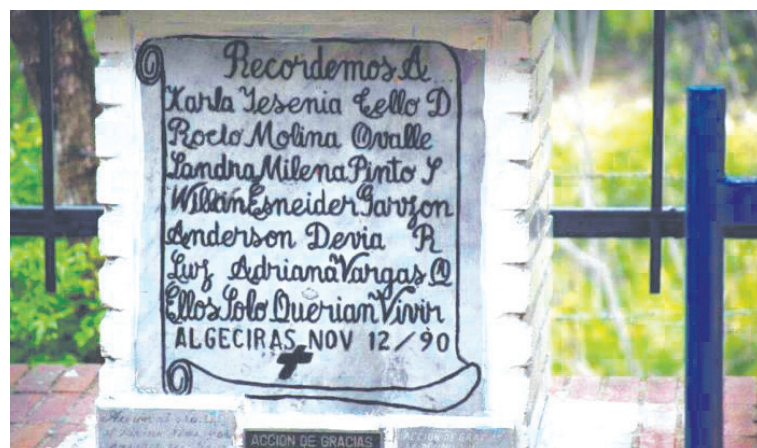 Recordemos A
Karla Yesenia Cello D
Rocio Molina Ovalle
Sandra Milena Pinto S
Willian Esneider Garzon
Anderson Devia R
Luz Adriana Vargas Q
Ellos Solo Querian Vivir
ALGECIRAS NOV 12/90
Accion
ACCION DE GRACIAS
ACCION DE GRACIAS